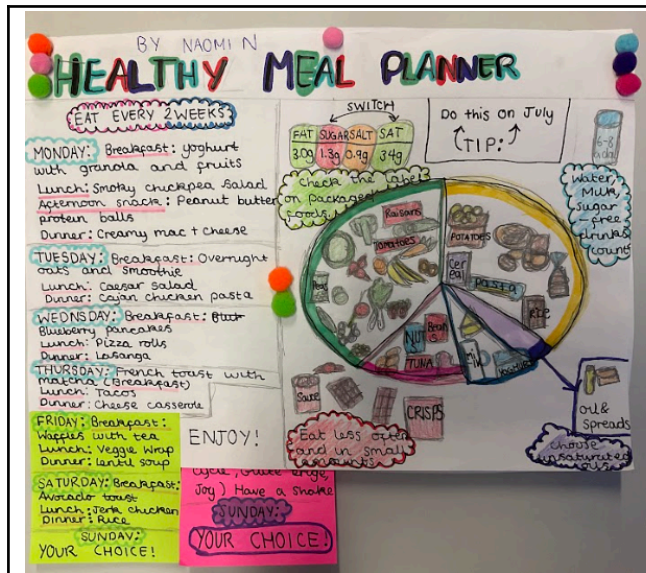 BY NAOMI N
HEALTHY MEAL PLANNER
EAT EVERY 2 WEEKS
MONDAY: Breakfast: yoghurt
with granola and fruits
Lunch: Smoky chickpea salad
Afternoon snack: Peanut butter
protein balls
Dinner: Creamy mac + cheese
TUESDAY: Breakfast: Overnight
oats and smoothie
Lunch: Caesar salad
Dinner: Cajan chicken pasta
WEDNSDAY: Breakfast:
Blueberry pancakes
Lunch: Pizza rolls
Dinner: Lasanga
THURSDAY: French toast with
matcha (Breakfast)
Lunch: Tacos
Dinner: Cheese casserole
FRIDAY: Breakfast:
Waffles with tea
Lunch: Veggie Wrap
Dinner: lentil soup
SATURDAY: Breakfast:
Avocado toast
Lunch: Jerk chicken
Dinner: Rice
SUNDAY:
YOUR CHOICE!
ENJOY!
Joy) Have a shake
SUNDAY:
YOUR CHOICE!
SWITCH
FAT SUGAR SALT SAT
3.0g 1.3g 0.9g 34g
Check the label
on packaged
foods
Do this on July
TIP:
6-8
a day
Water,
Milk,
Sugar
free
drinks
count
Raisans
TOMATOES
POTATOES
Cer
eal
pasta
Rice
Peas
NUT
S
Beans
TUNA
Sauce
CRISPS
Eat less often
and in small
amounts
oil &
Spreads
choose
unsaturated
oils